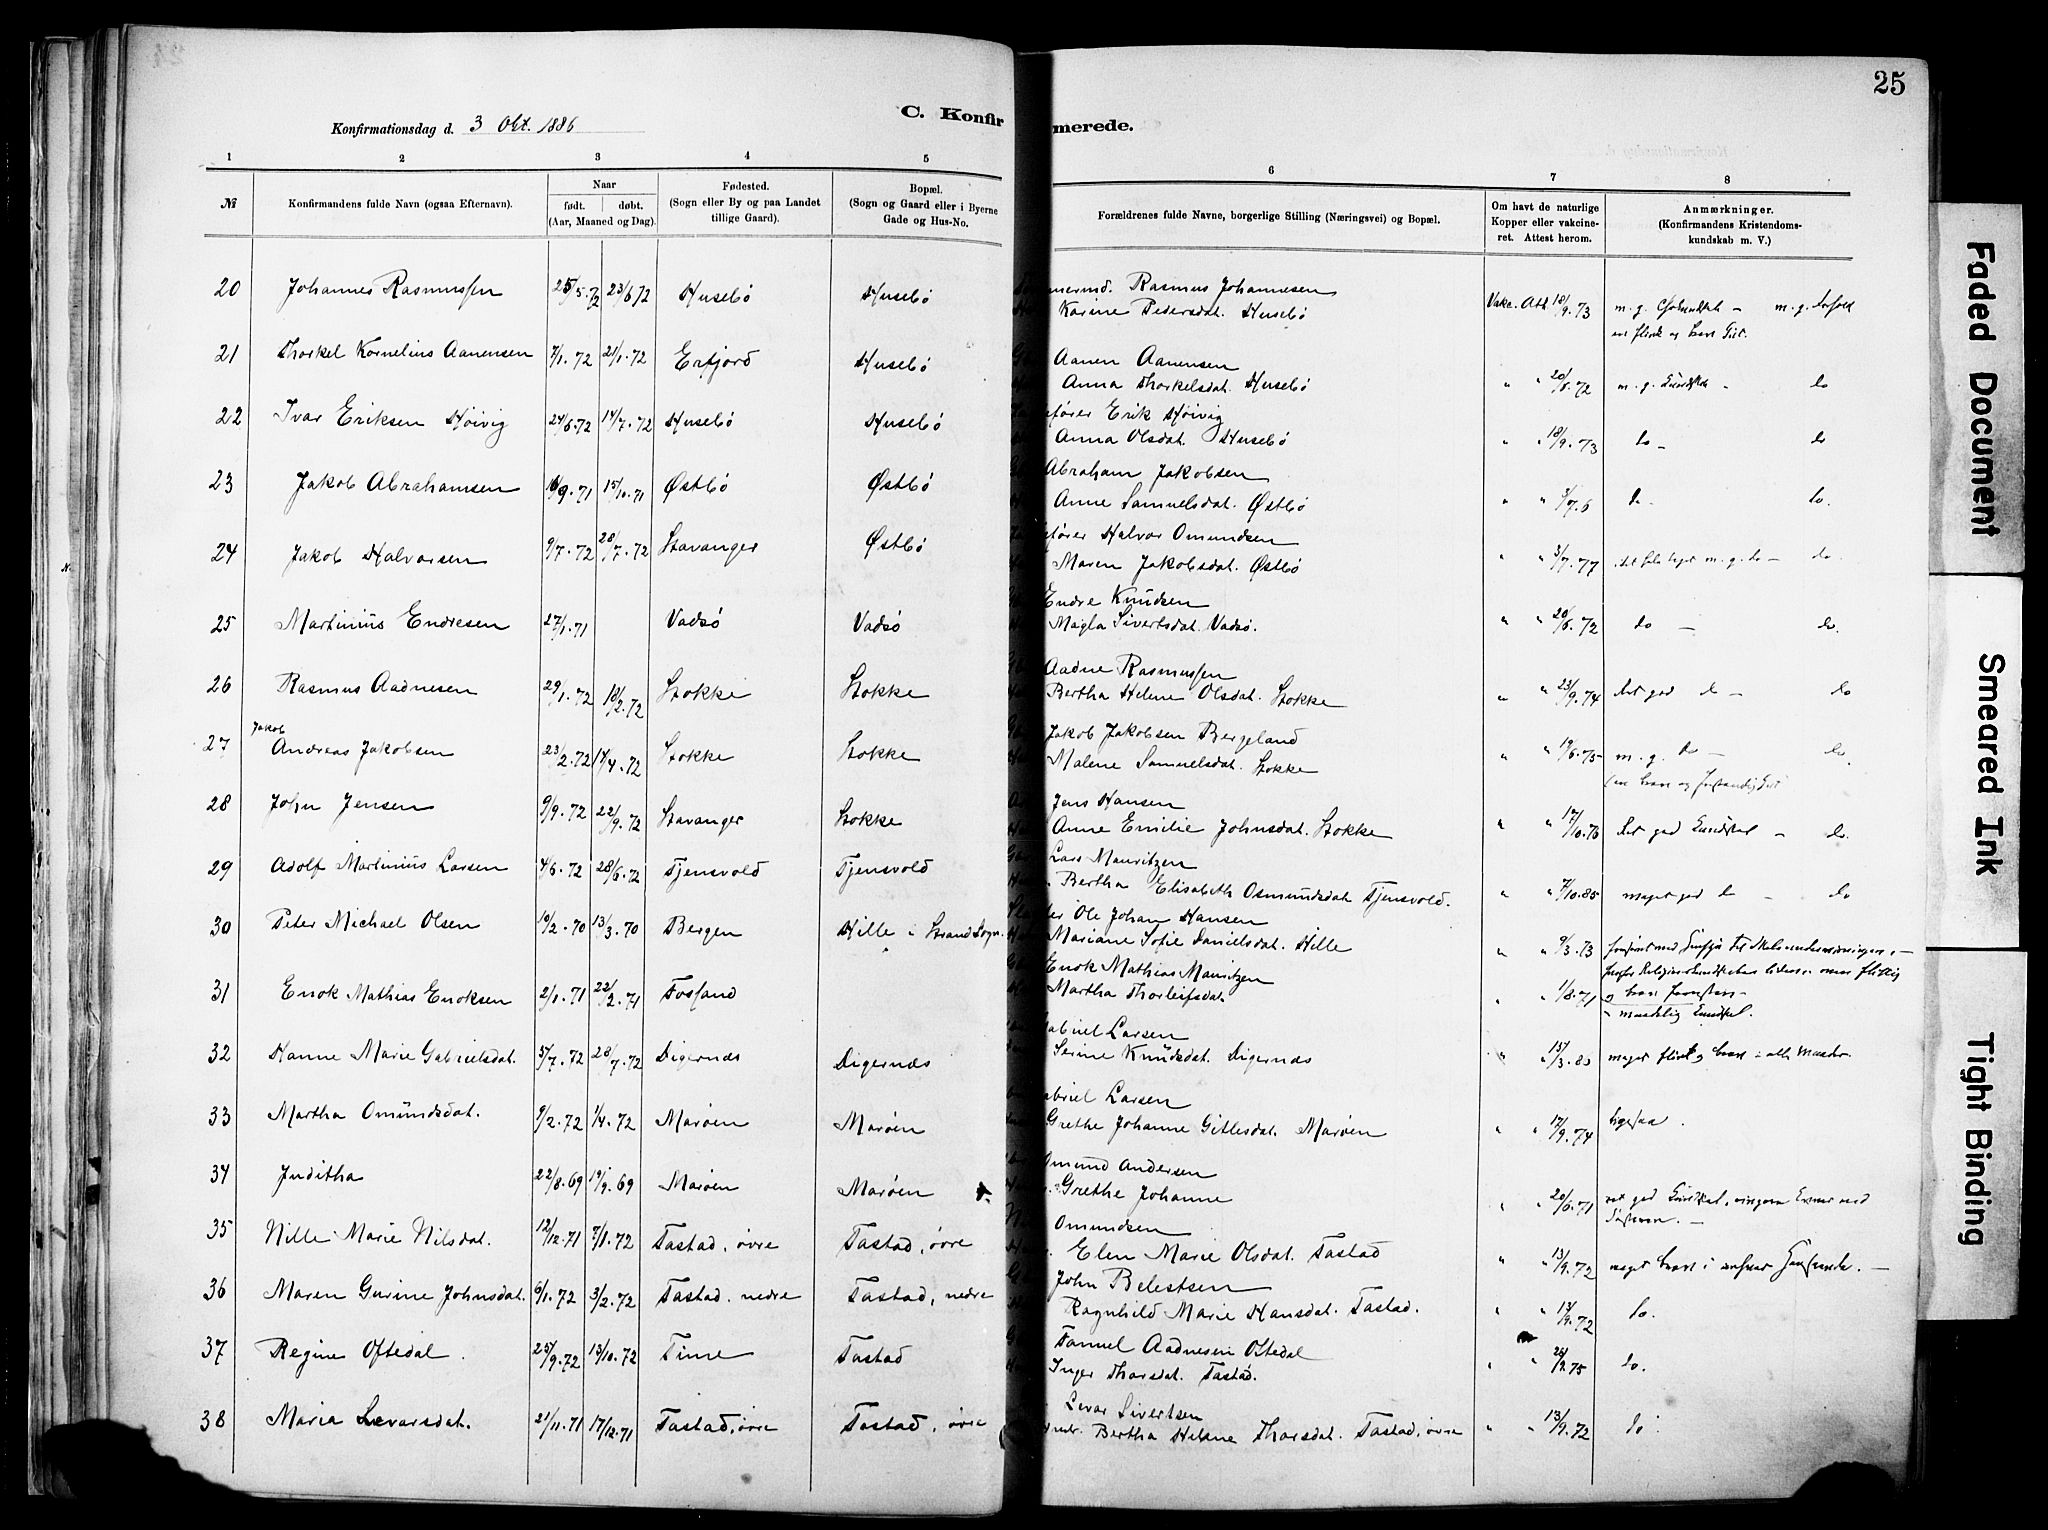 25
Konfirmationsdag d. 3 Okt. 1886
C. Konfirmerede.
1 2 3 4 5 6 7 8
№ Konfirmandens fulde Navn (ogsaa Efternavn). Naar født. døbt. (Aar, Maaned og Dag). Fødested. (Sogn eller By og paa Landet tillige Gaard). Bopæl. (Sogn og Gaard eller i Byerne Gade og Hus-No. Forældrenes fulde Navne, borgerlige Stilling (Næringsvei) og Bopæl. Om havt de naturlige Kopper eller vakcineret. Attest herom. Anmærkninger. (Konfirmandens Kristendomskundskab m. V.)
20 Johannes Rasmussen 25/5.72 23/6 72 Husebö Husebö Rasmus Johannesen Vakc. Att. 18/9.73 m. g.
Karine Pedersdat. Husebö
21 Thorkel Kornelius Aanensen 7/1.72 21/1.72 Erfjord Husebö Aanen Aanensen
Anna Thorkelsdat. Husebö " " 20/6.72 m. g. Kundskab - do
22 Ivar Eriksen Höivig 24/6.72 14/7.72 Husebö Husebö Erik Höivig
Anna Olsdat. Husebö " " 18/9.73 do - do
23 Jakob Abrahamsen 16/9.71 15/10.71 Østbö Østbö Abraham Jakobsen
Anne Samuelsdat. Østbö " " do - do.
24 Jakob Halvorsen 9/7.72 28/7.72 Stavanger Østbö Halvor Omundsen
Maren Jakobsdat. Østbö " " 3/7.77 m. g. do - do.
25 Martinius Endresen 27/1.71 Vadsø Vadsø Endre Knudsen
Magla Sivertsdat. Vadsø. " " 20/6.72 do - do.
26 Rasmus Aadnesen 29/1.72 18/2.72 Stokke Stokke Aadne Rasmussen
Bertha Helene Olsdat. Stokke " " 23/9.74 Det god do - do
27 Jakob Andreas Jakobsen 23/2.72 14/4.72 Stokke Stokke Jakob Jakobsen Bergeland
Malene Samuelsdat. Stokke " " 19/6.75 m. g. do - do.
28 John Jensen 9/9.72 22/9.72 Stavanger Stokke Jens Hansen
Anne Emilie Johnsdat. Stokke " " 17/10.76 Det god Kundskab - do.
29 Adolf Martinius Larsen 4/6.72 28/6.72 Tjensvold Tjensvold Lars Mauritzen
Bertha Elisabeth Osmundsdat Tjensvold. " " 7/10.85 meget god do - do
30 Peter Michael Olsen 10/2.70 13/3.70 Bergen Hille i Strand Sogn. Ole Johan Hansen
Mariane Sofie Danielsdat. Hille " " 9/3.73
31 Enok Mathias Enoksen 2/1.71 22/2.71 Fossand Enok Mathias Mauritzen
Martha Thorleifsdat. " " 1/8.71 maadelig Kundskab.
32 Hanne Marie Gabrielsdat. 5/7.72 28/7.72 Digernæs Digernæs Gabriel Larsen
Serine Knudsdat. Digernæs " " 15/3.83 meget flink og brav i alle Maader.
33 Martha Omundsdat. 9/2.72 1/4.72 Marøen Marøen Gabriel Larsen
Grethe Johanne Gitlesdat. Marøen " " 17/9.74 ligesaa.
34 Juditha 22/8.69 19/9.69 Marøen Marøen Omund Andersen
Grethe Johanne " " 20/6.71
35 Nille Marie Nilsdat. 12/12.71 7/1.72 Tastad, øvre Tastad, øvre Omundsen
Elen Marie Olsdat. Tastad " " 13/9.72 meget brav i
36 Maren Gurine Johnsdat. 6/1.72 3/2.72 Tastad, nedre Tastad, nedre John Belestsen
Ragnhild Marie Hansdat. Tastad. " " 13/9.72 do.
37 Regine Oftedal. 25/9.72 13/10.72 Time Tastad Samuel Aadnesen Oftedal
Inger Thorsdat. Tastad. " " 26/9.75 do.
38 Maria Levarsdat. 21/11.71 17/12.71 Tastad, øvre Tastad, øvre Levar Sivertsen
Bertha Helene Thorsdat. Tastad, øvre " " 13/9.72 do
Faded Document
Smeared Ink
Tight Binding